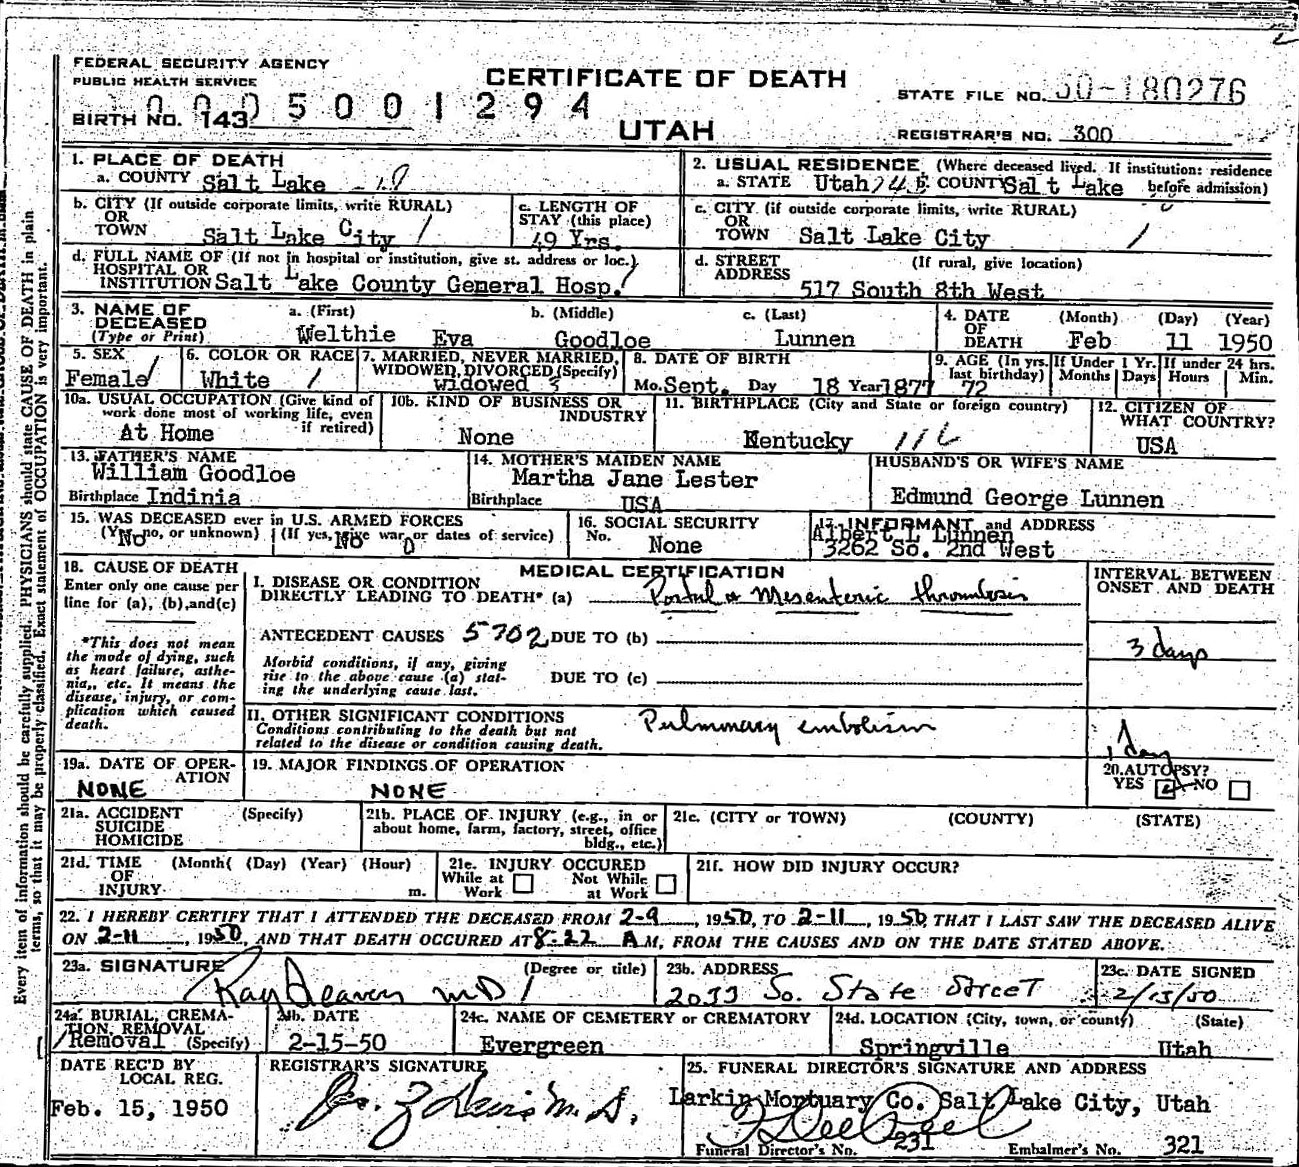 FEDERAL SECURITY AGENCY
PUBLIC HEALTH SERVICE
CERTIFICATE OF DEATH
STATE FILE NO. 50-180276
0005001294
BIRTH NO. 143
UTAH
REGISTRAR'S NO. 300
1. PLACE OF DEATH
a. COUNTY Salt Lake
2. USUAL RESIDENCE (Where deceased lived. If institution: residence before admission)
a. STATE Utah b. COUNTY Salt Lake
b. CITY (If outside corporate limits, write RURAL)
OR
TOWN Salt Lake City
c. LENGTH OF
STAY (this place)
49 Yrs.
c. CITY (if outside corporate limits, write RURAL)
OR
TOWN Salt Lake City
d. FULL NAME OF (If not in hospital or institution, give st. address or loc.)
HOSPITAL OR
INSTITUTION Salt Lake County General Hosp.
d. STREET (If rural, give location)
ADDRESS
517 South 8th West
3. NAME OF
DECEASED
(Type or Print)
a. (First) b. (Middle) c. (Last)
Welthie Eva Goodloe Lunnen
4. DATE
OF
DEATH
(Month) (Day) (Year)
Feb 11 1950
5. SEX
Female
6. COLOR OR RACE
White
7. MARRIED, NEVER MARRIED,
WIDOWED, DIVORCED (Specify)
Widowed
8. DATE OF BIRTH
Mo. Sept. Day 18 Year 1877
9. AGE (In yrs. last birthday)
72
If Under 1 Yr. If under 24 hrs.
Months Days Hours Min.
10a. USUAL OCCUPATION (Give kind of
work done most of working life, even
if retired)
At Home
10b. KIND OF BUSINESS OR
INDUSTRY
None
11. BIRTHPLACE (City and State or foreign country)
Kentucky
12. CITIZEN OF
WHAT COUNTRY?
USA
13. FATHER'S NAME
William Goodloe
Birthplace Indinia
14. MOTHER'S MAIDEN NAME
Martha Jane Lester
Birthplace USA
HUSBAND'S OR WIFE'S NAME
Edmund George Lunnen
15. WAS DECEASED ever in U.S. ARMED FORCES
(Yes, no, or unknown) (If yes, give war or dates of service)
No No
16. SOCIAL SECURITY
No.
None
17. INFORMANT and ADDRESS
Albert L Lunnen
3262 So. 2nd West
18. CAUSE OF DEATH
Enter only one cause per
line for (a), (b), and (c)
*This does not mean
the mode of dying, such
as heart failure, asthe-
nia,, etc. It means the
disease, injury, or com-
plication which caused
death.
MEDICAL CERTIFICATION
I. DISEASE OR CONDITION
DIRECTLY LEADING TO DEATH* (a) Portal & Mesenteric thrombosis
ANTECEDENT CAUSES 5702 DUE TO (b)
Morbid conditions, if any, giving
rise to the above cause (a) stat-
ing the underlying cause last.
DUE TO (c)
II. OTHER SIGNIFICANT CONDITIONS
Conditions contributing to the death but not
related to the disease or condition causing death.
Pulmonary embolism
INTERVAL BETWEEN
ONSET AND DEATH
3 days
1 day
19a. DATE OF OPER-
ATION
NONE
19. MAJOR FINDINGS OF OPERATION
NONE
20. AUTOPSY?
YES NO
21a. ACCIDENT (Specify)
SUICIDE
HOMICIDE
21b. PLACE OF INJURY (e.g., in or
about home, farm, factory, street, office
bldg., etc.)
21c. (CITY or TOWN) (COUNTY) (STATE)
21d. TIME (Month( (Day) (Year) (Hour)
OF
INJURY m.
21e. INJURY OCCURED
While at Not While
Work at Work
21f. HOW DID INJURY OCCUR?
22. I HEREBY CERTIFY THAT I ATTENDED THE DECEASED FROM 2-9, 1950, TO 2-11, 1950, THAT I LAST SAW THE DECEASED ALIVE
ON 2-11, 1950, AND THAT DEATH OCCURED AT 8:22 A M, FROM THE CAUSES AND ON THE DATE STATED ABOVE.
23a. SIGNATURE (Degree or title)
MD
23b. ADDRESS
2033 So. State Street
23c. DATE SIGNED
2/13/50
24a. BURIAL, CREMA-
TION, REMOVAL
Removal (Specify)
24b. DATE
2-15-50
24c. NAME OF CEMETERY or CREMATORY
Evergreen
24d. LOCATION (City, town, or county) (State)
Springville Utah
DATE REC'D BY
LOCAL REG.
Feb. 15, 1950
REGISTRAR'S SIGNATURE
25. FUNERAL DIRECTOR'S SIGNATURE AND ADDRESS
Larkin Mortuary Co. Salt Lake City, Utah
Funeral Director's No. 231 Embalmer's No. 321
Every item of information should be carefully supplied. PHYSICIANS should state CAUSE OF DEATH in plain
terms, so that it may be properly classified. Exact statement of OCCUPATION is very important.